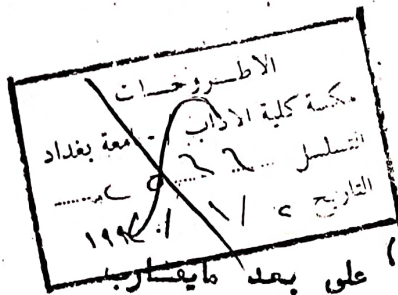 الاطروحات
مكتبة كلية الاداب - جامعة بغداد
التسلسل
التاريخ
على بعد مايقارب